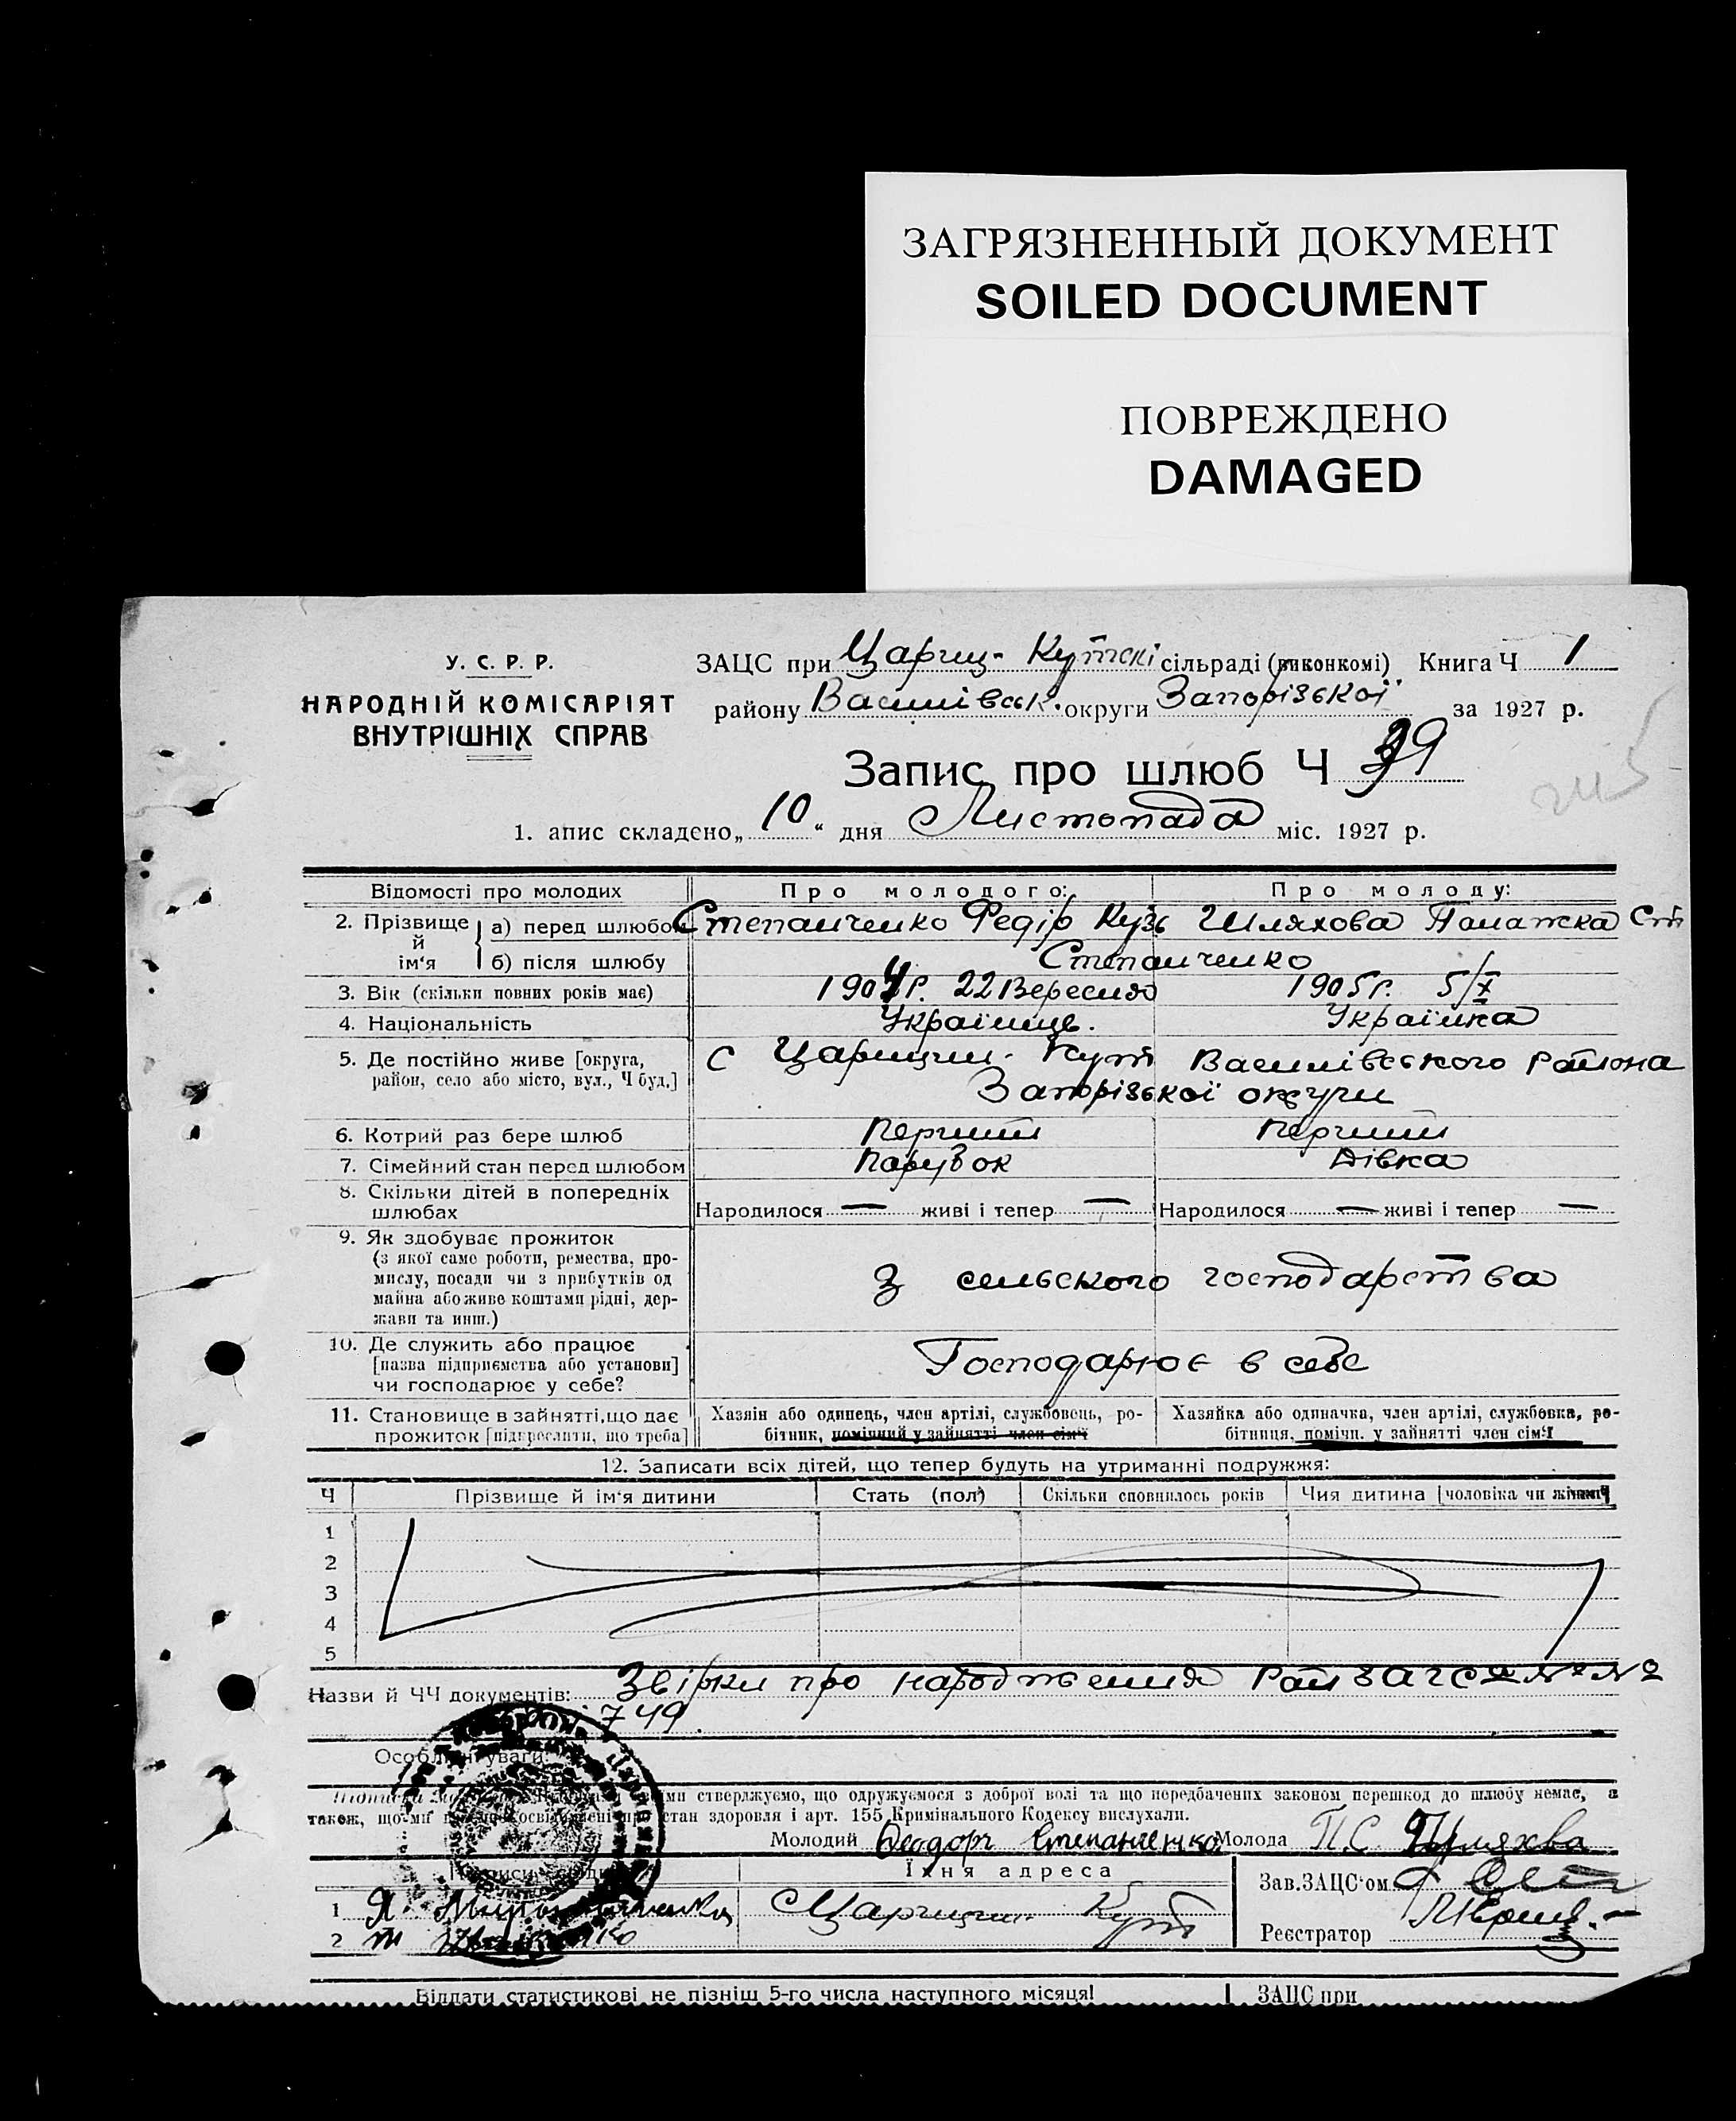 ЗАГРЯЗНЕННЫЙ ДОКУМЕНТ
SOILED DOCUMENT
ПОВРЕЖДЕНО
DAMAGED
У. С. Р. Р.
НАРОДНІЙ КОМІСАРІЯТ
ВНУТРІШНІХ СПРАВ
ЗАЦС при Цариц-Кутскі сільраді (виконкомі) Книга Ч 1
району Василівськ. округи Запорізької за 1927 р.
Запис про шлюб Ч 39
1. апис складено „10“ дня Листопада міс. 1927 р.
Відомості про молодих Про молодого: Про молоду:
2. Прізвище й ім'я а) перед шлюбом Степанченко Федір Кузь Шляхова Палажка Ст
б) після шлюбу Степанченко
3. Вік (скільки повних років має) 1904 р. 22 Вересня 1905 р. 5/X
4. Національність Українець. Українка
5. Де постійно живе [округа, район, село або місто, вул., Ч буд.] с Царицин-Кут Василівського района
Запорізької округи
6. Котрий раз бере шлюб Перший Перший
7. Сімейний стан перед шлюбом Парубок Дівка
8. Скільки дітей в попередніх шлюбах Народилося — живі і тепер — Народилося — живі і тепер —
9. Як здобуває прожиток
(з якої саме роботи, ремества, про-
мислу, посади чи з прибутків од
майна або живе коштами рідні, дер-
жави та инш.)
З сельского господарства
10. Де служить або працює
[назва підприємства або установи]
чи господарює у себе?
Господарює в себе
11. Становище в зайнятті, що дає
прожиток [підкреслити, що треба]
Хазяїн або одинець, член артілі, службовець, ро-
бітник, помічний у зайнятті член сім'ї
Хазяйка або одиначка, член артілі, службовка, ро-
бітниця, помічн. у зайнятті член сім'ї
12. Записати всіх дітей, що тепер будуть на утриманні подружжя:
Ч Прізвище й ім'я дитини Стать (пол) Скільки сповнилось років Чия дитина [чоловіка чи жінки]
1
2
3
4
5
Назви й ЧЧ документів: Звірки про народження Рай ЗАГСа №№
749.
Особливі уваги:
ми стверджуємо, що одружуємося з доброї волі та що передбачених законом перешкод до шлюбу немає, а
також, що ми стан здоровля і арт. 155 Кримінального Кодексу вислухали.
Молодий Феодоръ Степанченко Молода П.С. Шляхова
Їхня адреса
Зав.ЗАЦС'ом
1 Я. Царицин Кут
2
Реєстратор
Віддати статистикові не пізніш 5-го числа наступного місяця!
ЗАЦС при